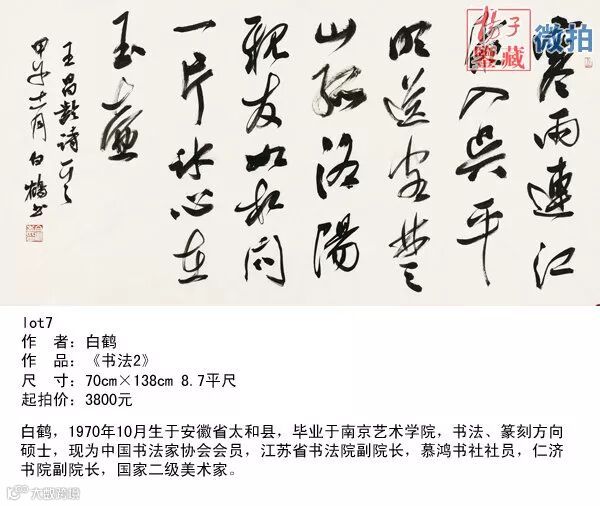 扬子
鉴藏
微拍
寒雨連江
夜入吳平
明送客楚
山孤洛陽
親友如相問
一片冰心在
玉壺
王昌齡詩一首
甲午十一月白鶴書
lot7
作 者：白鹤
作 品：《书法2》
尺 寸：70cm×138cm 8.7平尺
起拍价：3800元
白鹤，1970年10月生于安徽省太和县，毕业于南京艺术学院，书法、篆刻方向
硕士，现为中国书法家协会会员，江苏省书法院副院长，慕鸿书社社员，仁济
书院副院长，国家二级美术家。
大数跨境